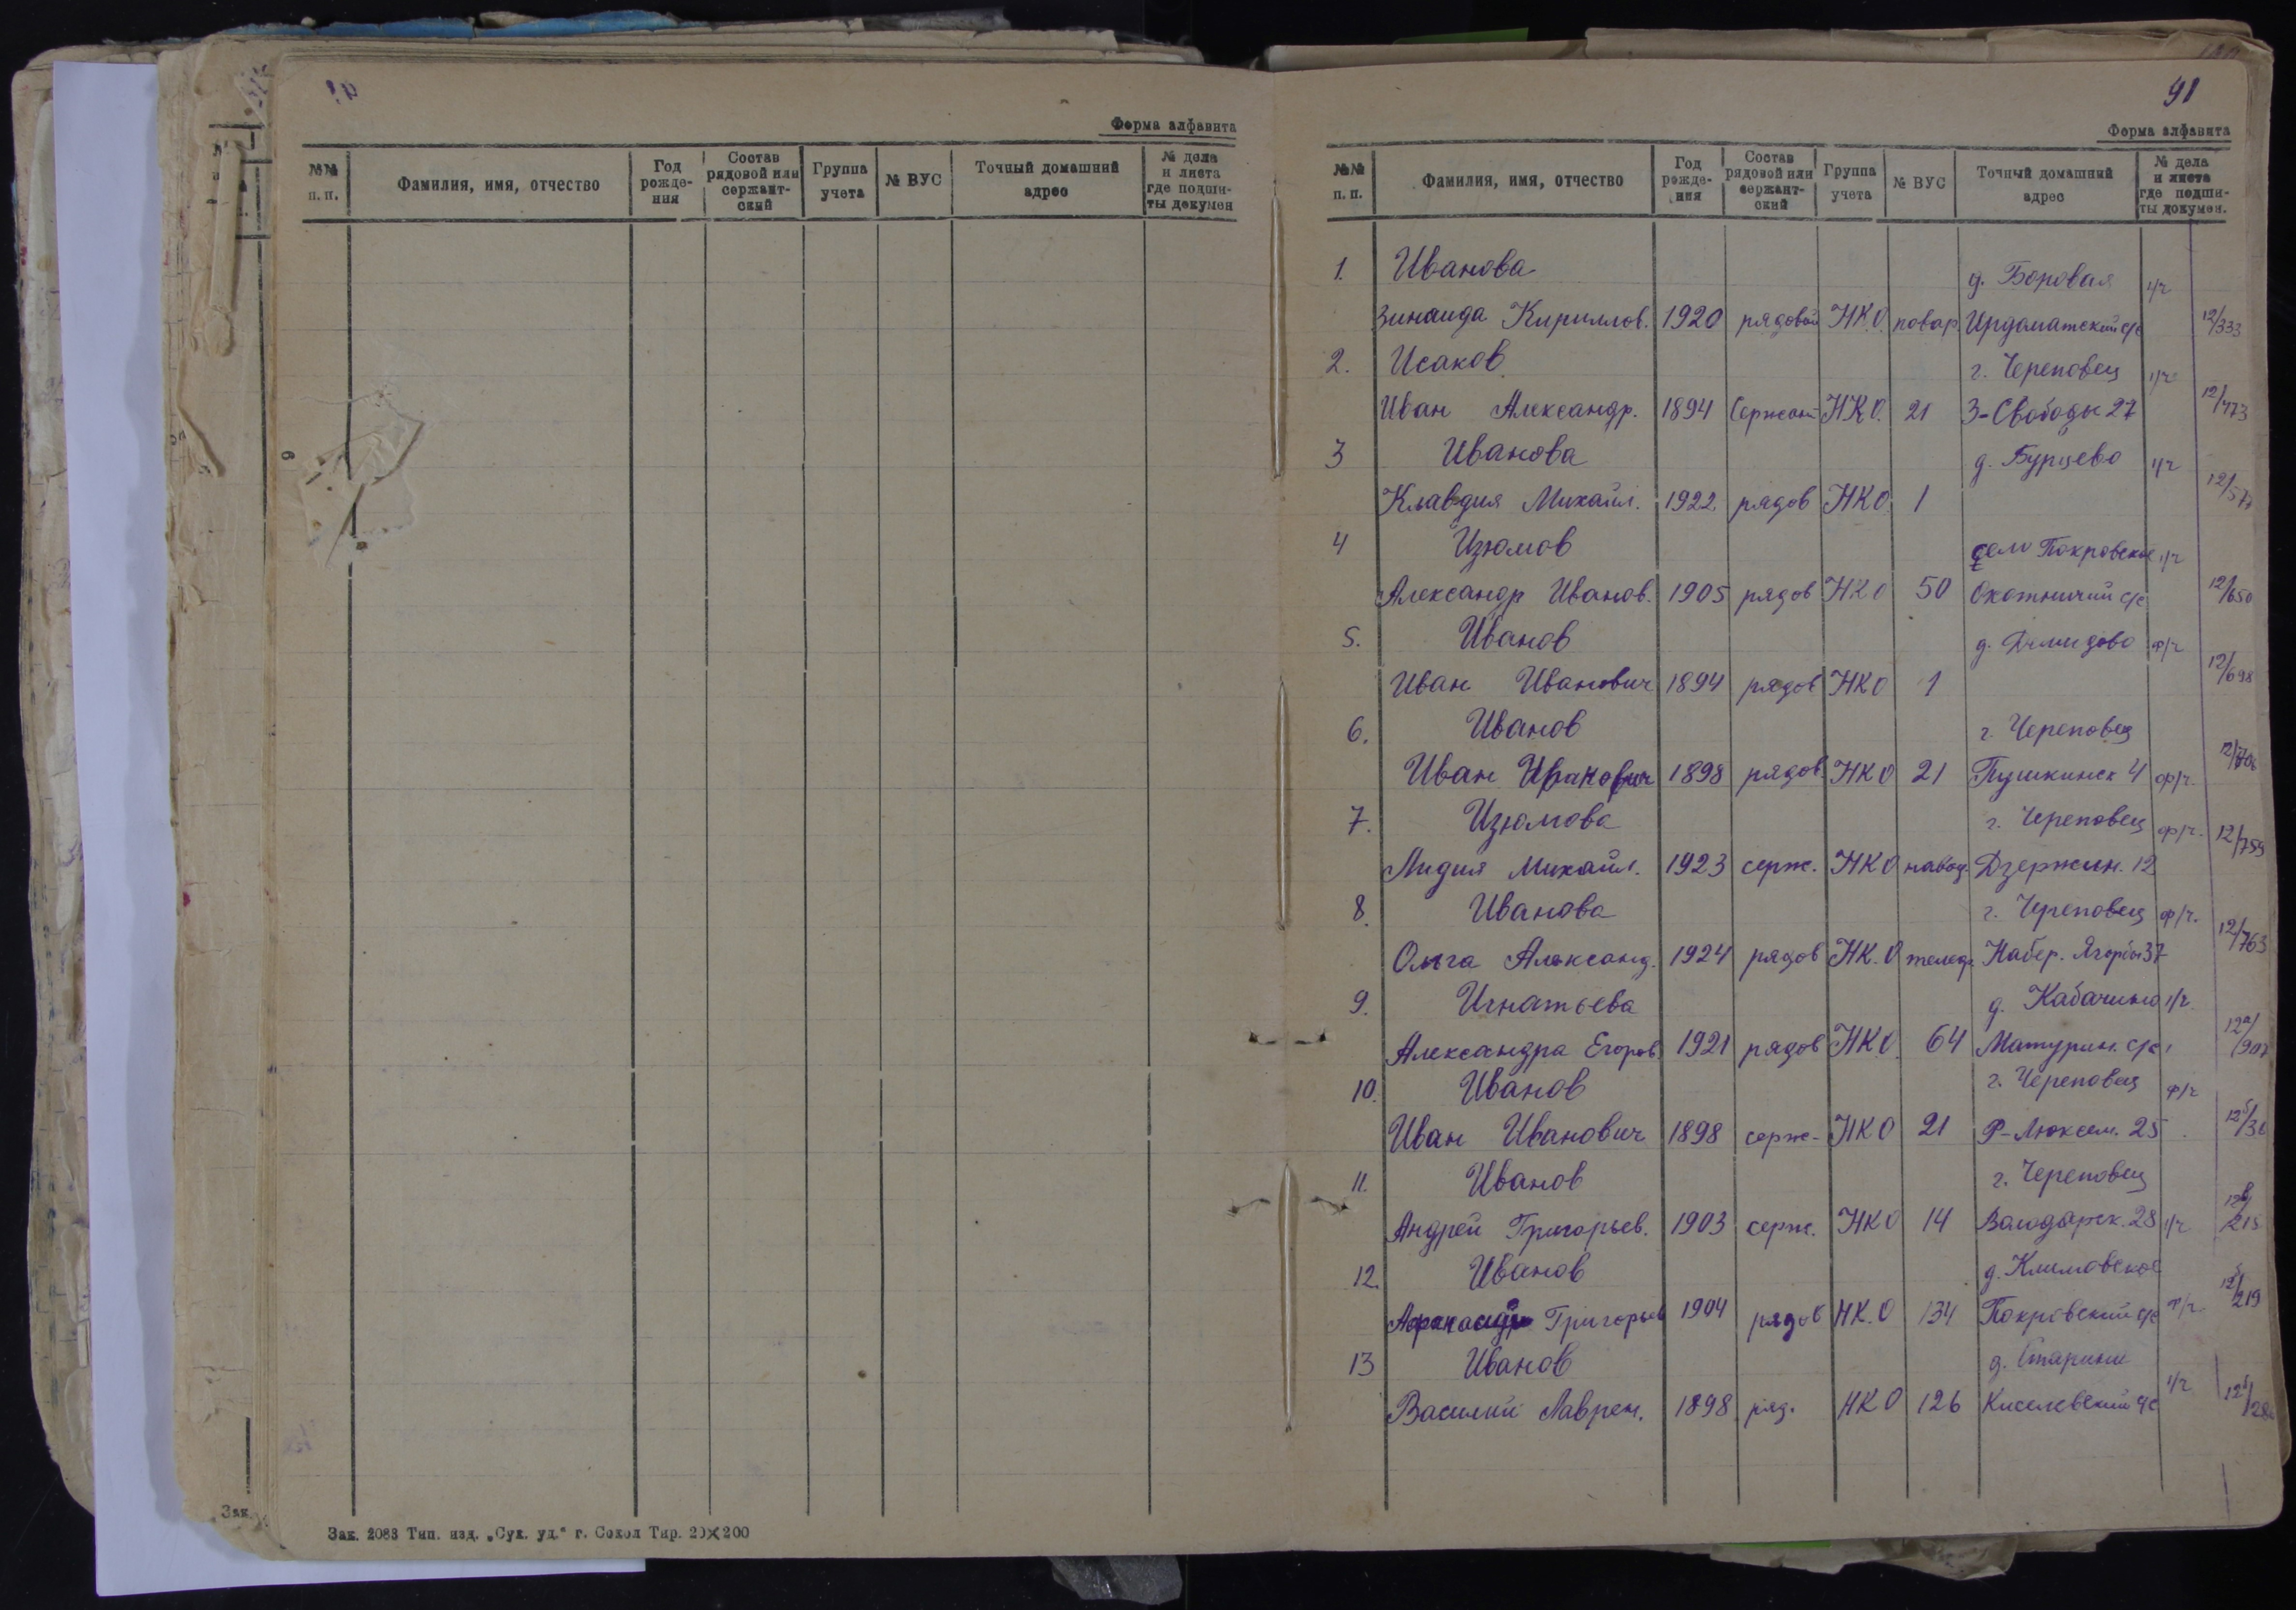 Форма алфавита
№№ п. п. Фамилия, имя, отчество Год рожде- ния Состав рядовой или сержант- ский Группа учета № ВУС Точный домашний адрес № дела и листа где подши- ты докумен
Зак. 2083 Тип. изд. „Сух. уд.“ г. Сокол Тир. 20×200
Зак.
91
Форма алфавита
№№ п. п. Фамилия, имя, отчество Год рожде- ния Состав рядовой или сержант- ский Группа учета № ВУС Точный домашний адрес № дела и листа где подши- ты докумен.
1. Иванова д. Боровая ч/ч
Зинаида Кириллов. 1920 рядовой НК.О. повар Ирдоматский с/с 12/333
2. Исаков г. Череповец ч/ч
Иван Александр. 1894 Сержант НКО. 21 З-Свободы 27 12/473
3 Иванова д. Бурцево ч/ч
Клавдия Михайл. 1922 рядов НКО. 1
4 Изюмов село Покровское ч/ч
Александр Иванов. 1905 рядов НКО 50 Охотничий с/с 12/650
5. Иванов д. Демидово ф/ч
Иван Иванович 1894 рядов НКО 1 12/698
6. Иванов г. Череповец
Иван Иванович 1898 рядов. НКО 21 Пушкинск 4 ф/ч.
7. Изюмова г. Череповец ф/ч.
Лидия Михайл. 1923 серж. НКО навод. Дзержин. 12 12/759
8. Иванова г. Череповец ф/ч.
Ольга Александ. 1924 рядов НК.О Набер. Ягорбы 37 12/763
9. Игнатьева д. Кабачино ч/ч
Александра Егоров. 1921 рядов НК.О. 64 Матурин. с/с
10. Иванов г. Череповец ф/ч
Иван Иванович 1898 серж- НКО 21 Р-Люксем. 25
11. Иванов г. Череповец
Андрей Григорьев. 1903 серж. НКО 14 Володарск. 28 ч/ч
12. Иванов д. Климовское
Григорьев 1904 рядов НК.О 134 Покровский с/с ф/ч.
13 Иванов д.
Василий Лаврен. 1898 ряд. НКО 126 Киселевский с/с ч/ч